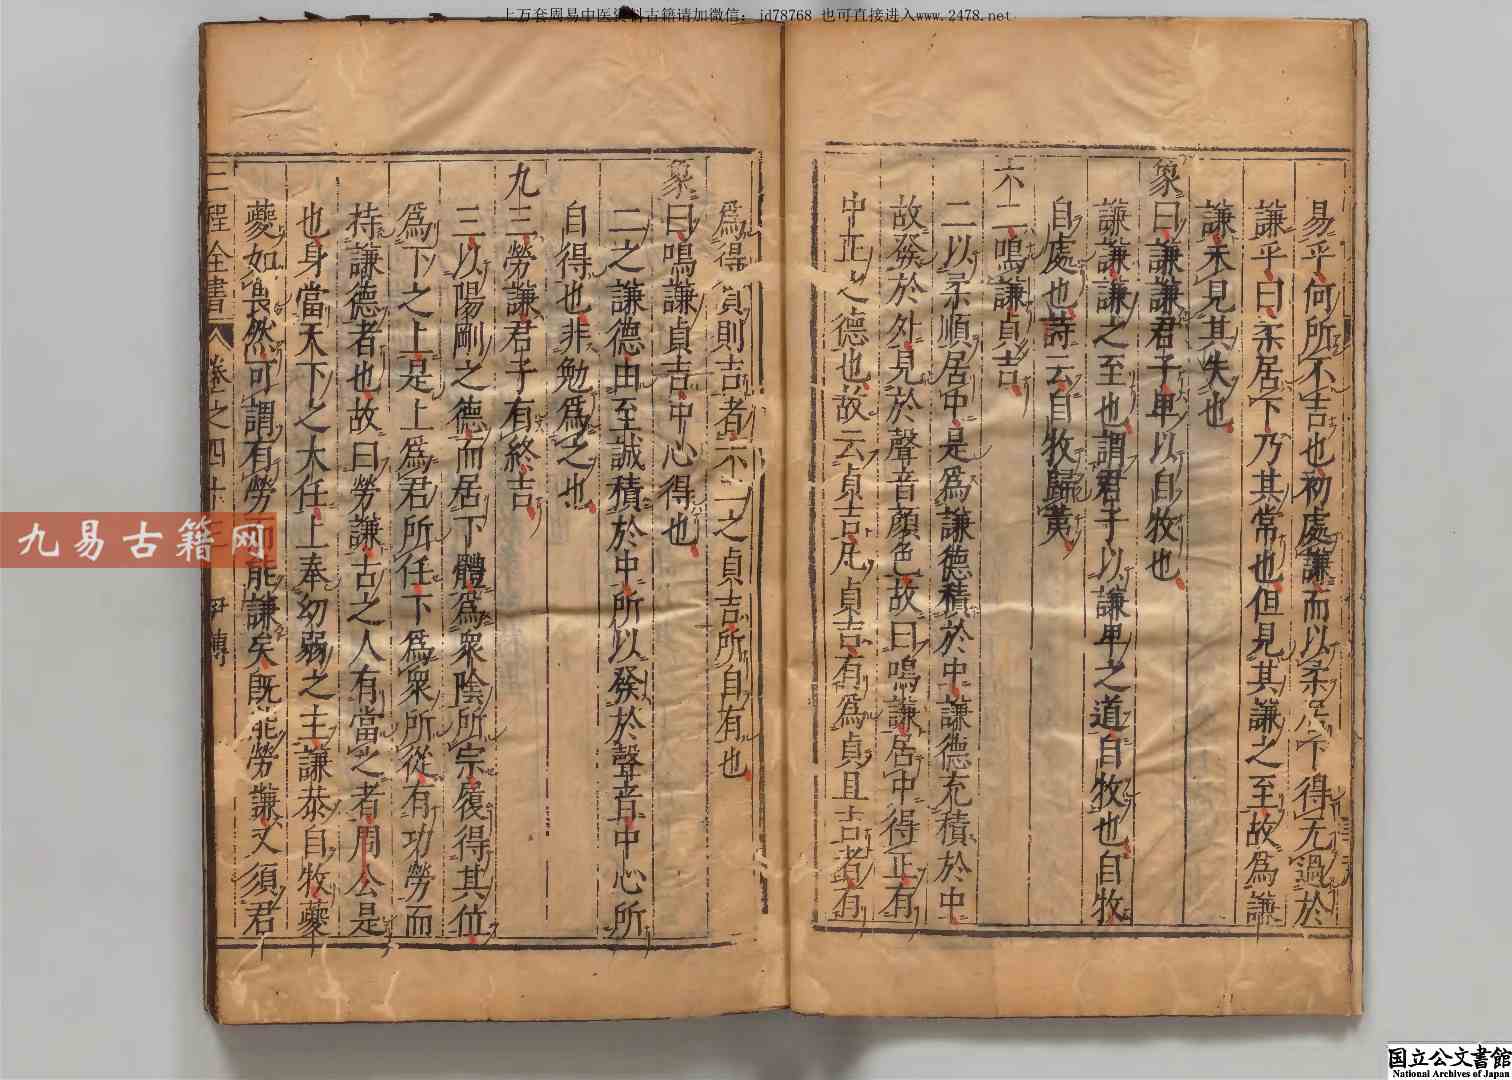 上万套周易中医资料古籍请加微信：jd78768 也可直接进入www.2478.net
易乎何所不吉也初處謙而以柔居下得无過於
謙乎曰柔居下乃其常也但見其謙之至故爲謙
謙未見其失也
象曰謙謙君子卑以自牧也
謙謙謙之至也謂君子以謙卑之道自牧也自牧
自處也詩云自牧歸荑
六二鳴謙貞吉
二以柔順居中是爲謙德積於中謙德充積於中
故發於外見於聲音顔色故曰鳴謙居中得正有
中正之德也故云貞吉凡貞吉有爲貞且吉者有
爲得貞則吉者六二之貞吉所自有也
象曰鳴謙貞吉中心得也
二之謙德由至誠積於中所以發於聲音中心所
自得也非勉爲之也
九三勞謙君子有終吉
三以陽剛之德而居下體爲衆陰所宗履得其位
爲下之上是上爲君所任下爲衆所從有功勞而
持謙德者也故曰勞謙古之人有當之者周公是
也身當天下之大任上奉幼弱之主謙恭自牧夔
夔如畏然可謂有勞而能謙矣既能勞謙又須君
二程全書 卷之四十三 尹傳
九易古籍网
国立公文書館
National Archives of Japan